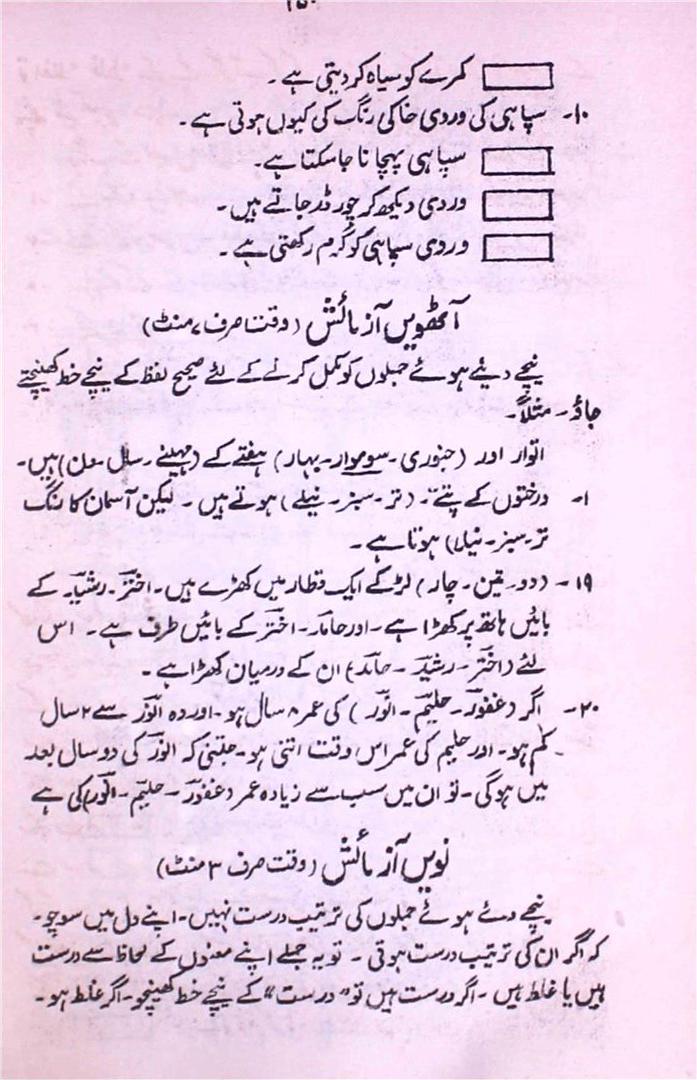 ۲۵۰
☐ کمرے کو سیاہ کر دیتی ہے ۔
۱۰۔ سپاہی کی وردی خاکی رنگ کی کیوں ہوتی ہے ۔
☐ سپاہی پہچانا جا سکتا ہے ۔
☐ وردی دیکھ کر چور ڈر جاتے ہیں ۔
☐ وردی سپاہی کو گرم رکھتی ہے ۔
آٹھویں آزمائش (وقت صرف ۷ منٹ)
نیچے دیئے ہوئے جملوں کو مکمل کرنے کے لئے صحیح لفظ کے نیچے خط کھینچتے
جاؤ ۔ مثلاً ۔
اتوار اور (جنوری ۔ سوموار ۔ بہار) ہفتے کے (مہینے ۔ سال ۔ دن) ہیں ۔
۱۔ درختوں کے پتے ۔ (تر ۔ سبز ۔ نیلے) ہوتے ہیں ۔ لیکن آسمان کا رنگ
تر ۔ سبز ۔ نیلا) ہوتا ہے ۔
۱۹ ۔ (دو ۔ تین ۔ چار) لڑکے ایک قطار میں کھڑے ہیں ۔ اختر ۔ رشید ۔ کے
بائیں ہاتھ پر کھڑا ہے ۔ اور حامد ۔ اختر کے بائیں طرف ہے ۔ اس
لئے (اختر ۔ رشید ۔ حامد) ان کے درمیان کھڑا ہے ۔
۲۰ ۔ اگر (غفور ۔ حلیم ۔ انور) کی عمر ۸ سال ہو ۔ اور وہ انور سے ۲ سال
کم ہو ۔ اور حلیم کی عمر اس وقت اتنی ہو ۔ جتنی کہ انور کی دو سال بعد
میں ہوگی ۔ تو ان میں سب سے زیادہ عمر (غفور ۔ حلیم ۔ انور) کی ہے
نویں آزمائش (وقت صرف ۳ منٹ)
نیچے دئے ہوئے جملوں کی ترتیب درست نہیں ۔ اپنے دل میں سوچو ۔
کہ اگر ان کی ترتیب درست ہوتی ۔ تو یہ جملے اپنے معنوں کے لحاظ سے درست
ہیں یا غلط ہیں ۔ اگر درست ہیں تو "درست" کے نیچے خط کھینچو ۔ اگر غلط ہو ۔